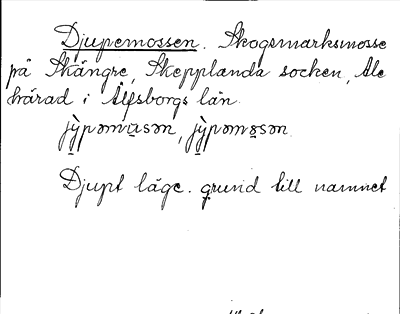 Djupemossen. Skogsmarksmosse
på Skångre, Skepplanda socken, Ale
härad i Älfsborgs län.
jỳpəmu̲sən, jỳpəmo̲sən.
Djupt läge. grund till namnet